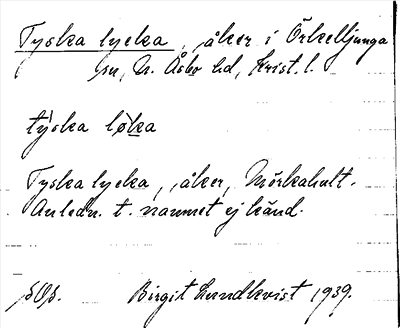 Tyska lycka, åker i Örkelljunga
sn, N. Åsbo hd, Krist. l.
tỳska lø̀ka
Tyska lycka, åker, Mörkahult.
Anledn. t. namnet ej känd.
SOS. Birgit Lundkvist 1939.